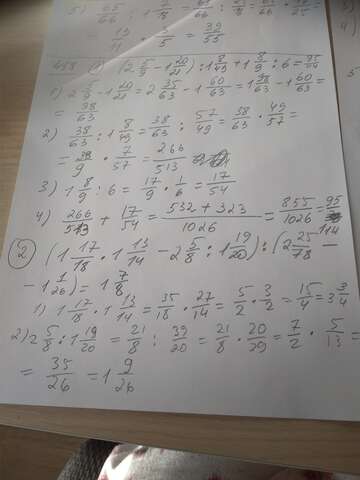 5) 65/66 : 1 7/18
19/11 · 3/5 = 39/55
458 ① (2 5/9 - 1 20/21) : 1 8/49 + 1 8/9 : 6 = 95/114
1) 2 5/9 - 1 20/21 = 2 35/63 - 1 60/63 = 1 98/63 - 1 60/63 =
= 38/63
2) 38/63 : 1 8/49 = 38/63 : 57/49 = 38/63 · 49/57 =
= 38/9 · 7/57 = 266/513
3) 1 8/9 : 6 = 17/9 · 1/6 = 17/54
4) 266/513 + 17/54 = 532 + 323/1026 = 855/1026 = 95/114
② (1 17/18 · 1 13/14 - 2 5/8 : 1 19/20) : (2 25/78 -
- 1 1/26) = 1 7/8
1) 1 17/18 · 1 13/14 = 35/18 · 27/14 = 5/2 · 3/2 = 15/4 = 3 3/4
2) 2 5/8 : 1 19/20 = 21/8 : 39/20 = 21/8 · 20/39 = 7/2 · 5/13 =
= 35/26 = 1 9/26